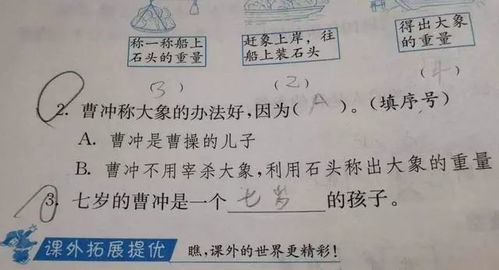 称一称船上
石头的重量
赶象上岸，往
船上装石头
得出大象
的重量
(3) (2) (4)
2. 曹冲称大象的办法好，因为( A )。(填序号)
A. 曹冲是曹操的儿子
B. 曹冲不用宰杀大象，利用石头称出大象的重量
3. 七岁的曹冲是一个 七岁 的孩子。
课外拓展提优 瞧，课外的世界更精彩！